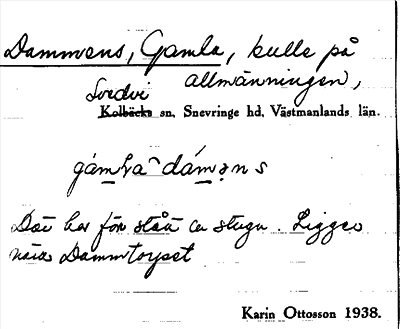 Dammens, Gamla, kulle på
Svedvi allmänningen,
Kolbäcks sn, Snevringe hd, Västmanlands län.
Där har för stått en stuga. Ligger
nära Dammtorpet
Karin Ottosson 1938.